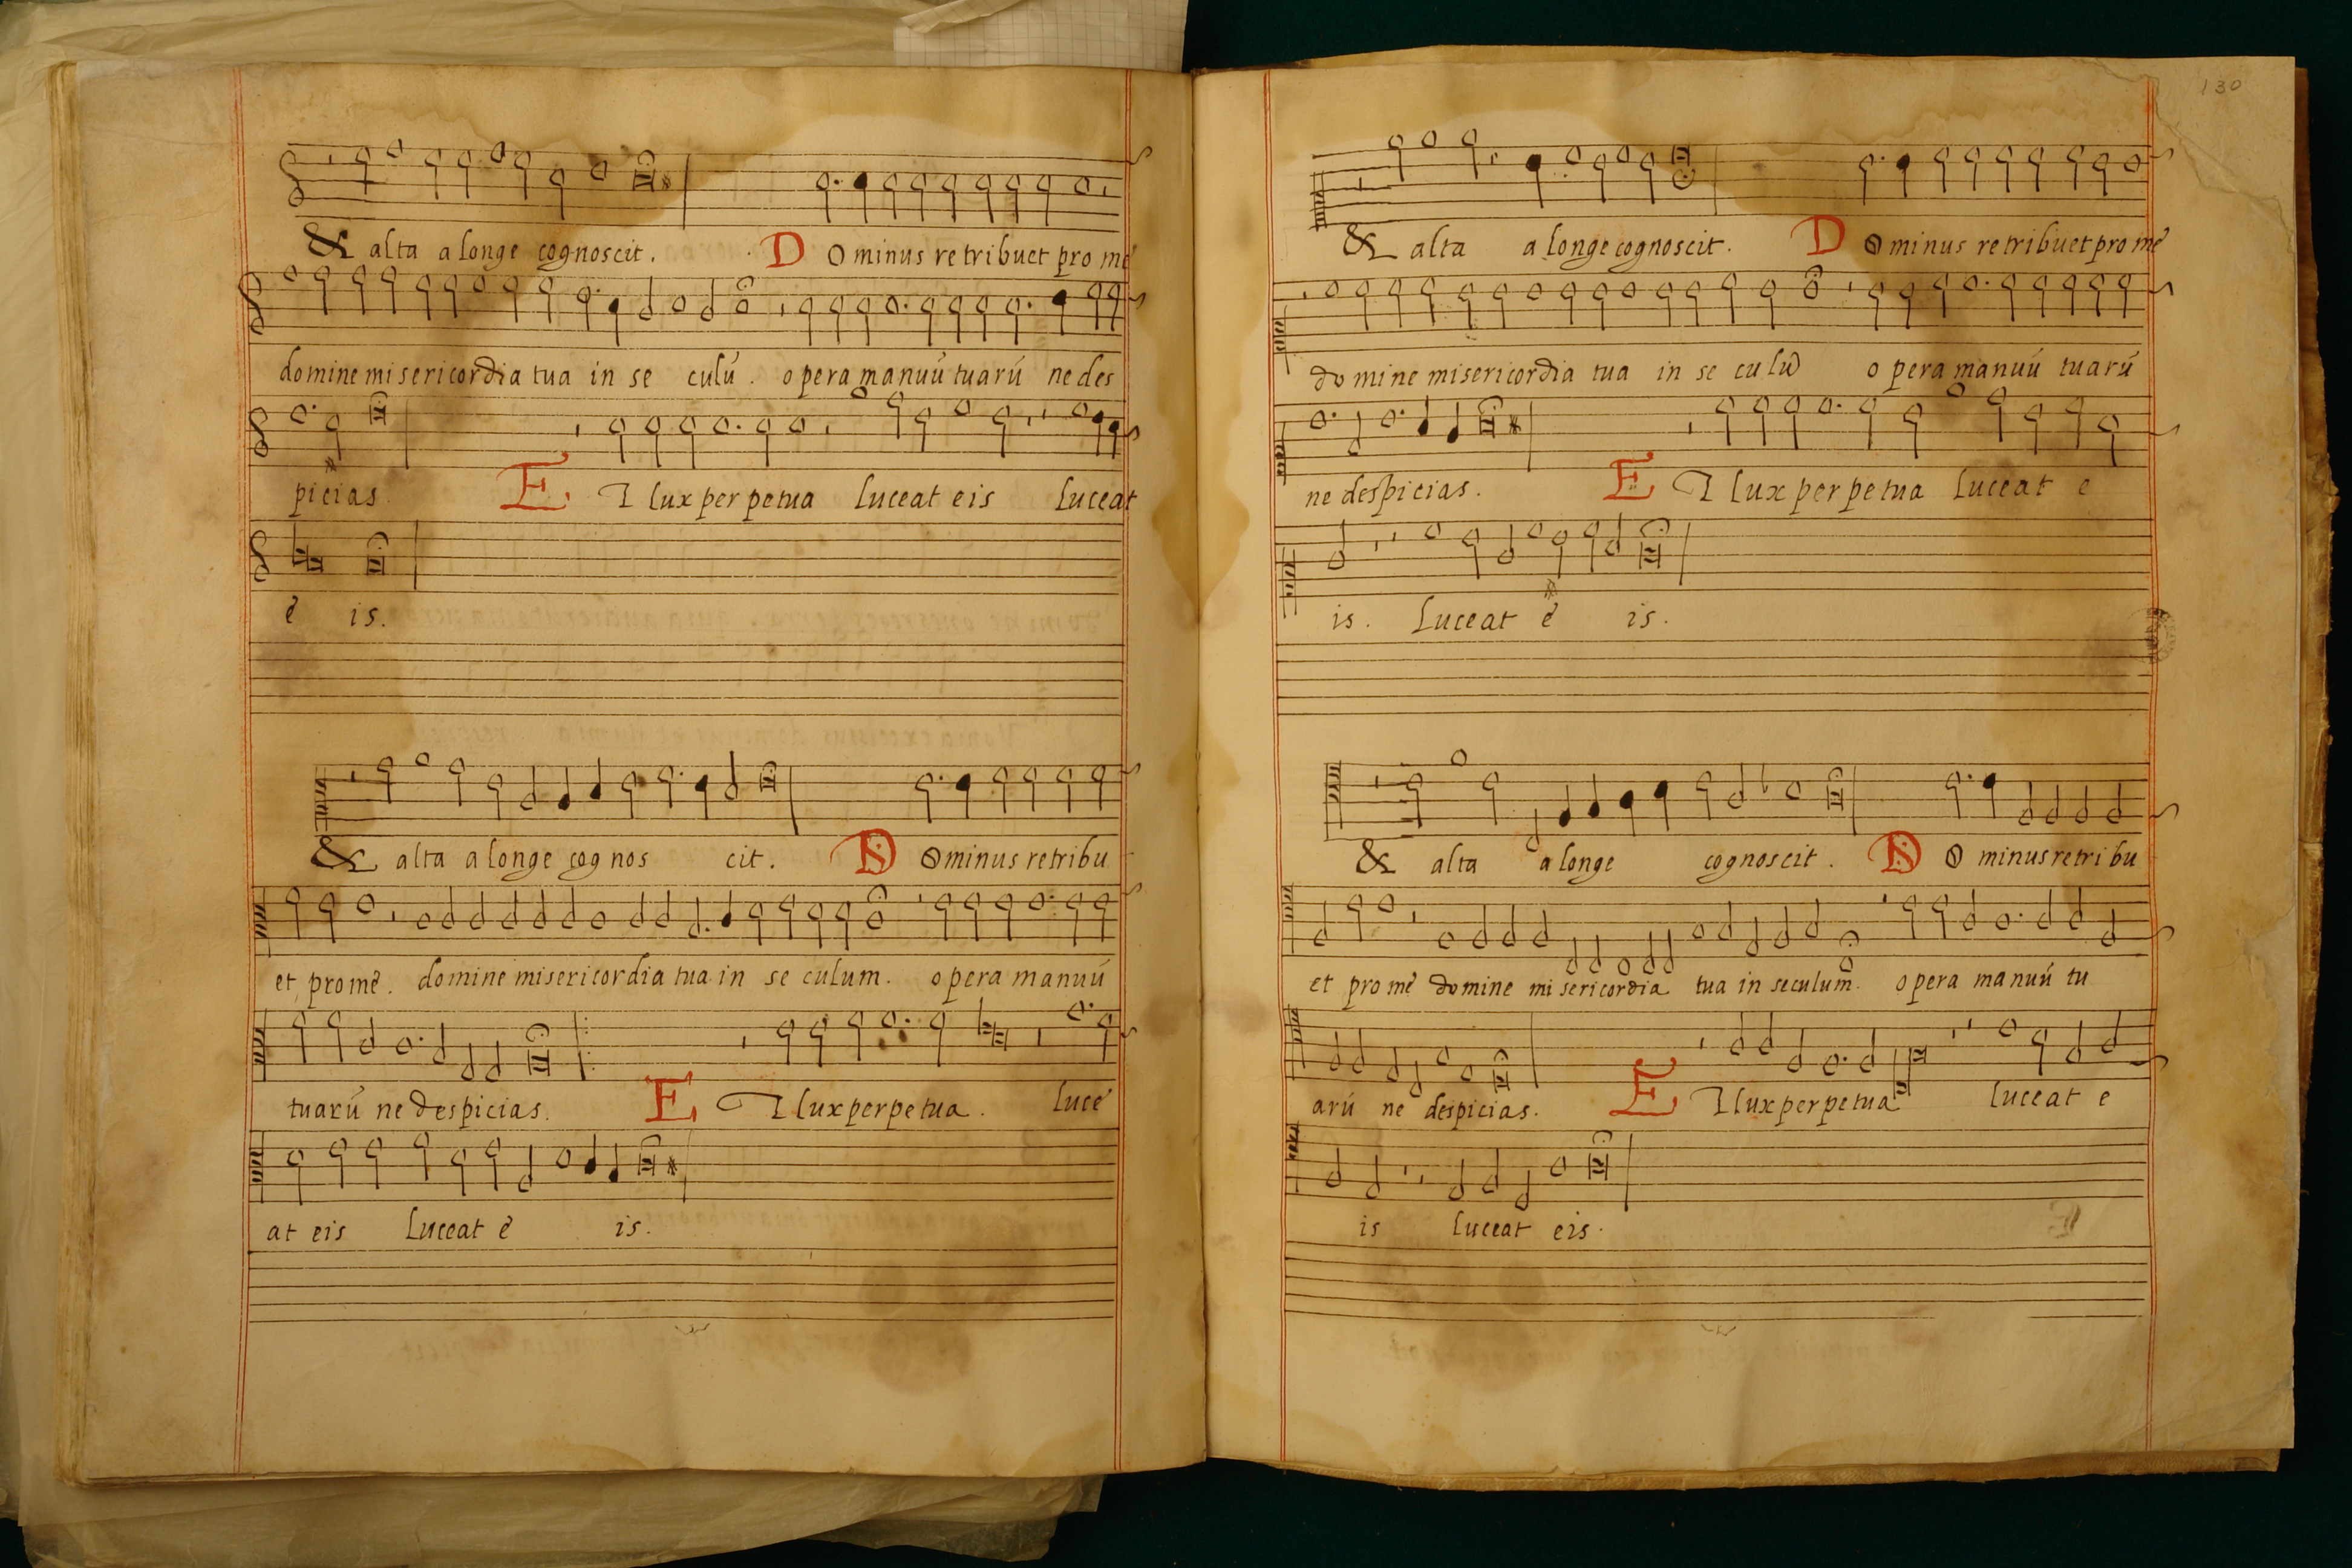 & alta a longe cognoscit. Dominus retribuet pro mé
domine misericordia tua in se culú. opera manuú tuarú ne des
picias. ET lux perpetua luceat eis luceat
é is.
& alta a longe cognos cit. Dominus retribu
et pro mé. domine misericordia tua in se culum. opera manuú
tuarú ne despicias. ET lux perpetua. lucé
at eis luceat é is.
130
& alta a longe cognoscit. Dominus retribuet pro mé
domine misericordia tua in se culú opera manuú tuarú
ne despicias. ET lux perpetua luceat e
is. luceat é is.
& alta a longe cognoscit. Dominus retribu
et pro mé domine misericordia tua in seculum. opera manuú tu
arú ne despicias. ET lux perpetua luceat e
is luceat eis.